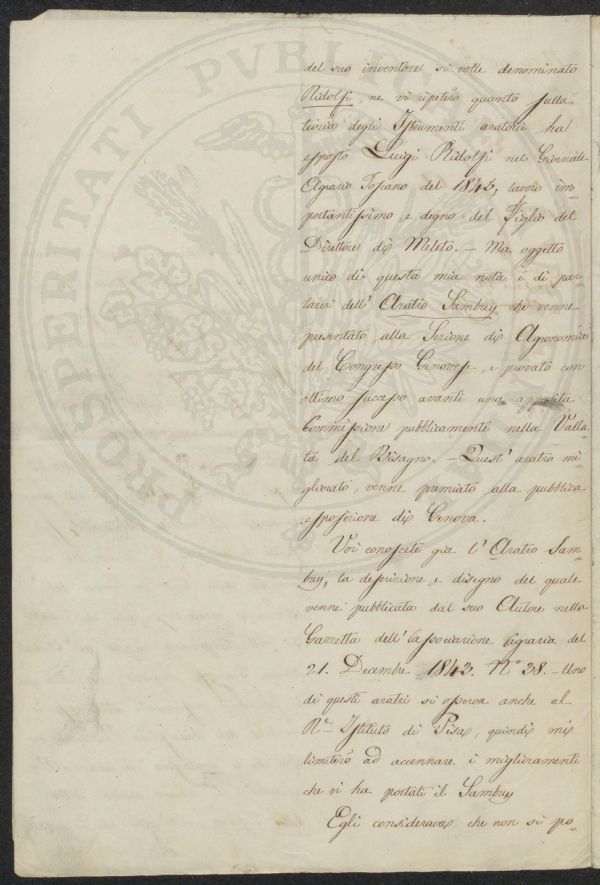 del suo inventore si volle denominato
Ridolfi, ne vi ripeterò quanto sulla
teoria degli Istrumenti aratorii ha
esposto Luigi Ridolfi nel Giornale
Agrario Toscano del 1843, lavoro im-
portantissimo, e degno del Figlio del
Direttore di Meleto. – Ma oggetto
unico di questa mia nota è di par-
larvi dell' Aratro Sambuy che venne
presentato alla Sezione di Agronomia
del Congresso Genovese, e provato con
ottimo successo avanti una apposita
Commissione pubblicamente nella Valla-
ta del Bisagno. – Quest' aratro mi-
gliorato, venne premiato alla pubblica
esposizione di Genova.
Voi conoscete già l' Aratro Sam-
buy, la descrizione, e disegno del quale
venne pubblicata dal suo Autore nella
Gazzetta dell' Associazione Agraria del
21. Decembre 1843. N° 38. – Uno
di questi aratri si osserva anche al
R.° Istituto di Pisa, quindi mi
limiterò ad accennare i miglioramenti
che vi ha portati il Sambuy
Egli considerava che non si po-
PROSPERITATI PVBLICAE